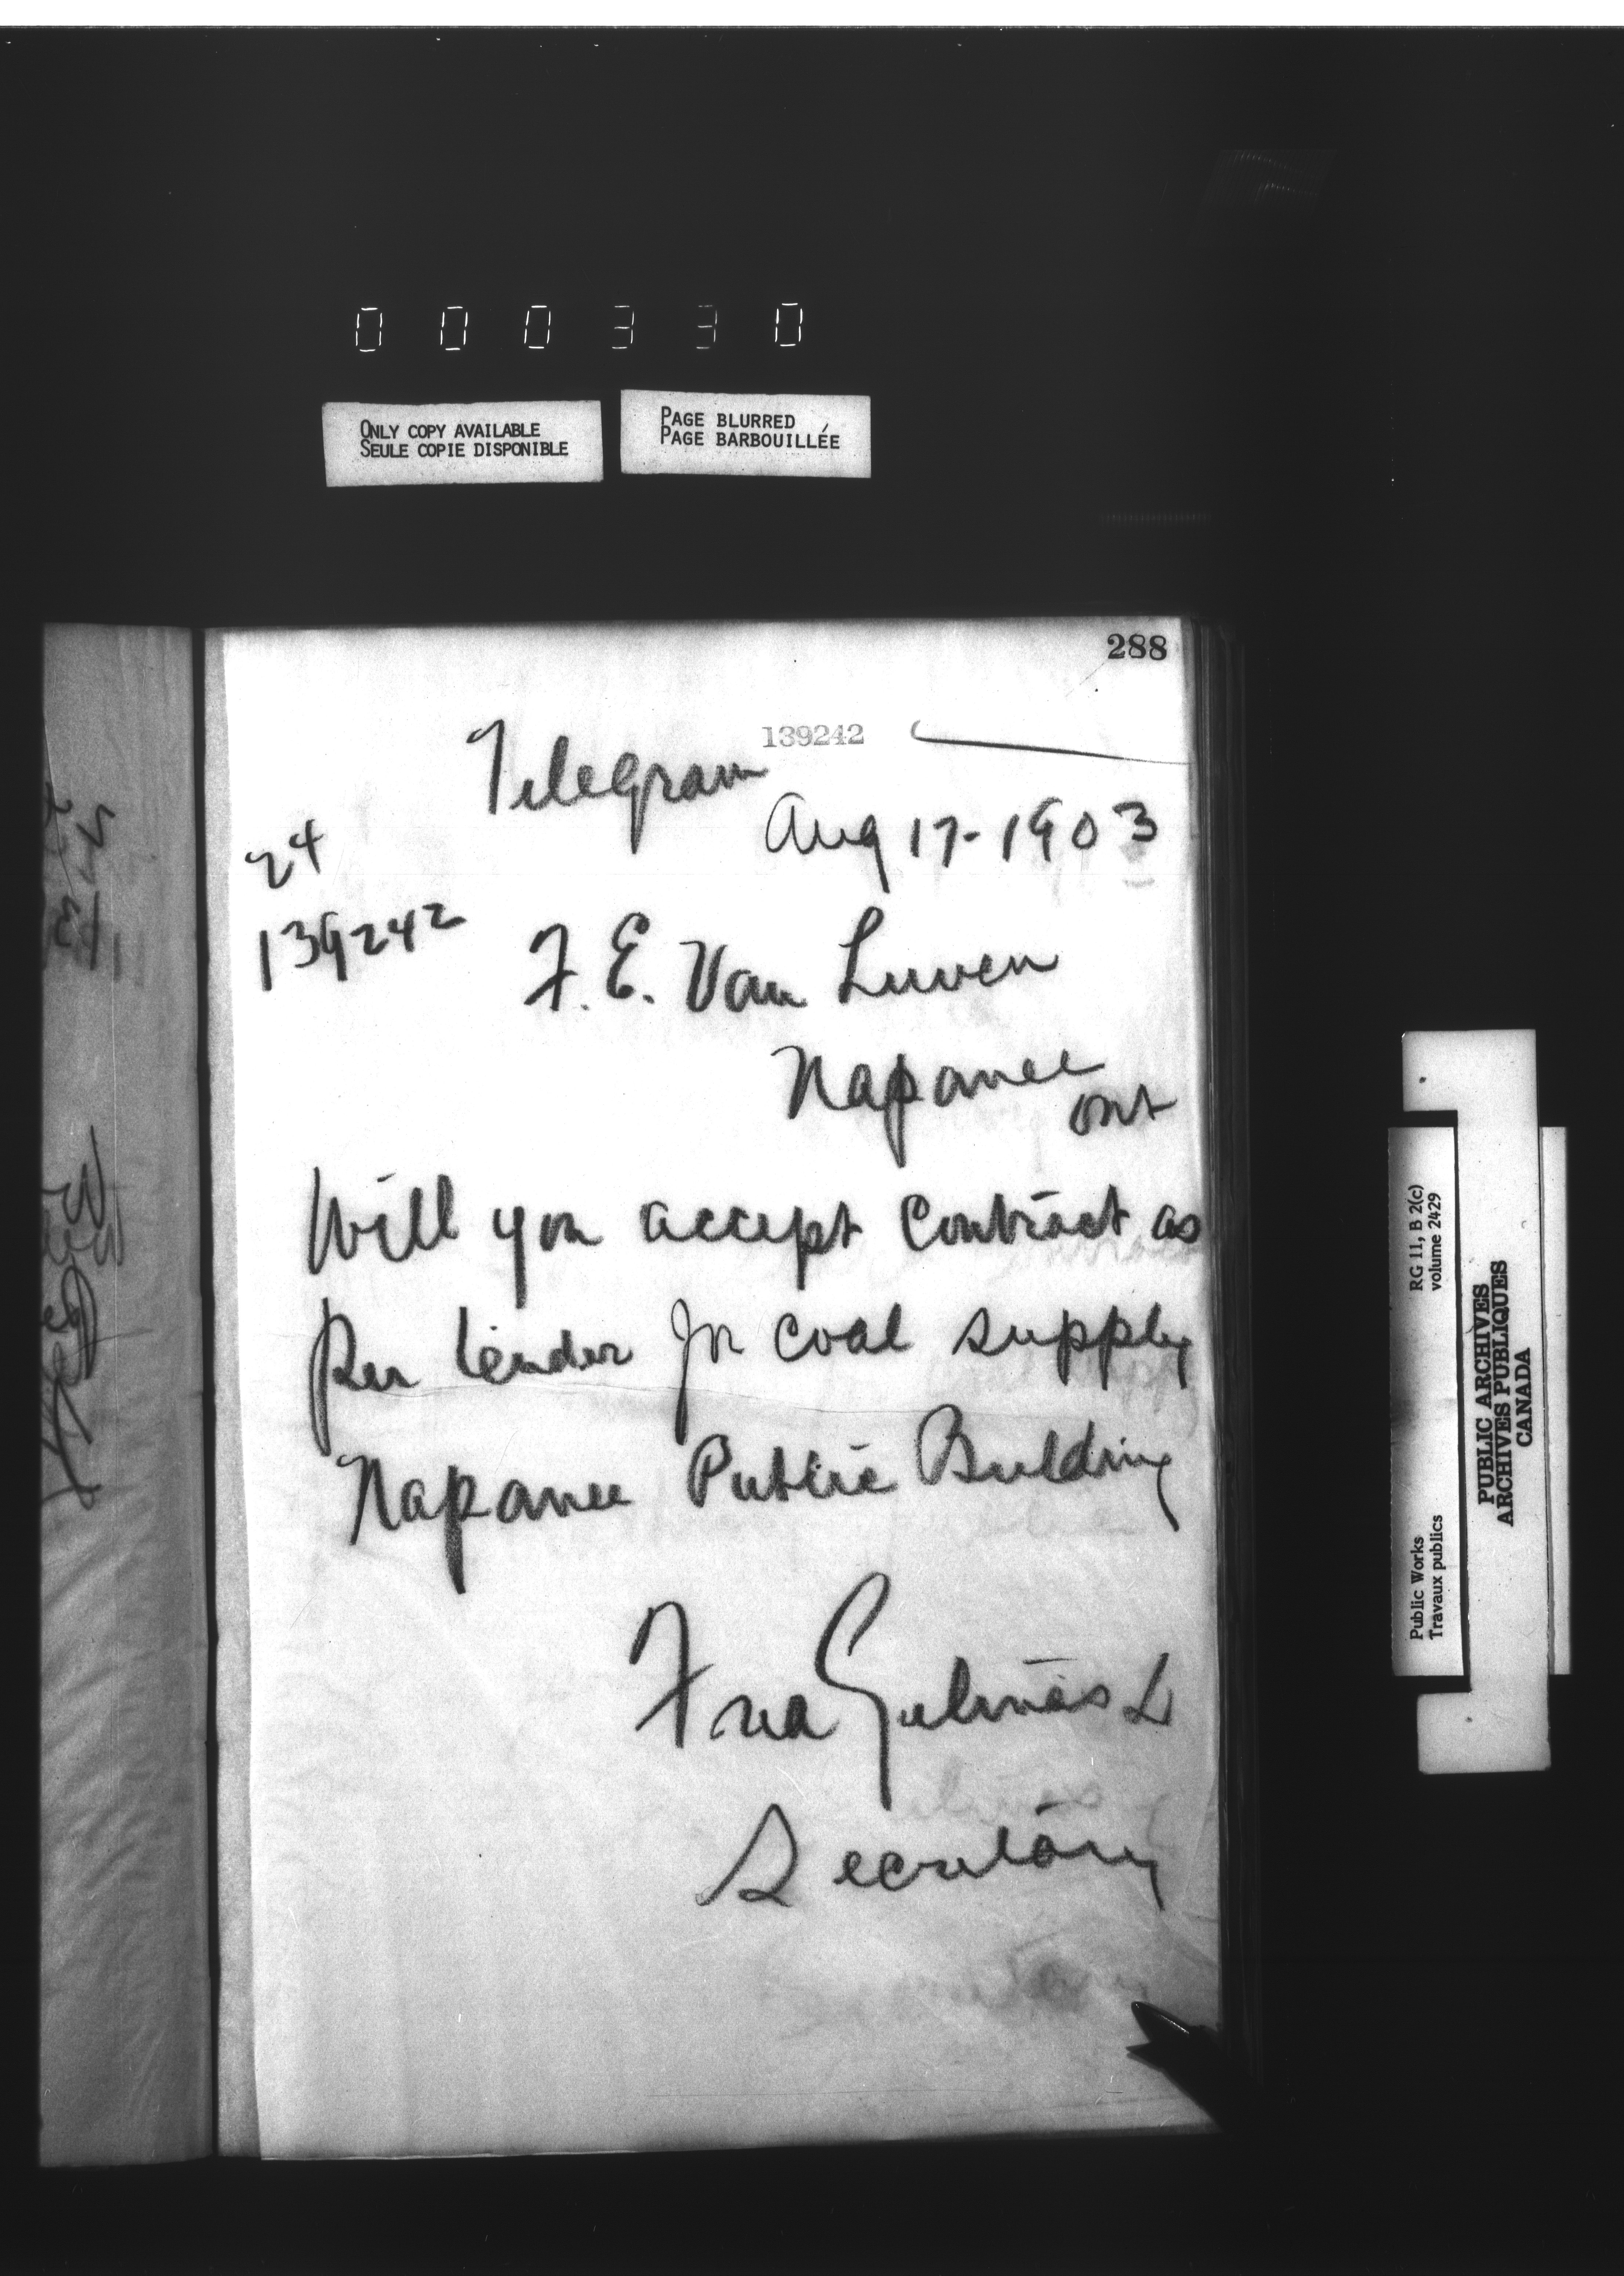 000330
ONLY COPY AVAILABLE
SEULE COPIE DISPONIBLE
PAGE BLURRED
PAGE BARBOUILLÉE
288
139242
Telegram
Aug 17-1903
24
139242
F. E. Van Luven
Napanee
Ont
Will you accept Contract as
per tender for coal supply
Napanee Public Building
Fred Gelinas
Secretary
Public Works
Travaux publics
RG 11, B 2(c)
volume 2429
PUBLIC ARCHIVES
ARCHIVES PUBLIQUES
CANADA